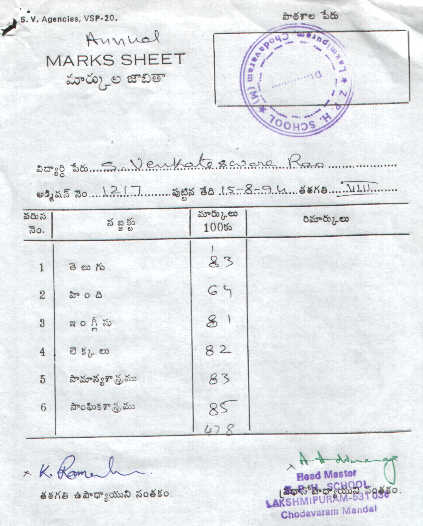 S. V. Agencies, VSP-20.
పాఠశాల పేరు
Annual
MARKS SHEET
మార్కుల జాబితా
Z. P. H. SCHOOL ★ Lakshmipuram (M) Chodavaram ★
విద్యార్థి పేరు S. Venkateswara Rao
అడ్మిషన్ నెం 1217 పుట్టిన తేది 15-8-94 తరగతి VIII
వరుస నెం. సబ్జక్టు మార్కులు 100కు రిమార్కులు
1 తెలుగు 83
2 హిందీ 64
3 ఇంగ్లీసు 81
4 లెక్కలు 82
5 సామాన్యశాస్త్రము 83
6 సాంఘికశాస్త్రము 85
478
K. Ramesh
తరగతి ఉపాధ్యాయుని సంతకం.
Head Master
Z. P. H. SCHOOL
ప్రధాన ఉపాధ్యాయుని సంతకం.
LAKSHMIPURAM-531036
Chodavaram Mandal